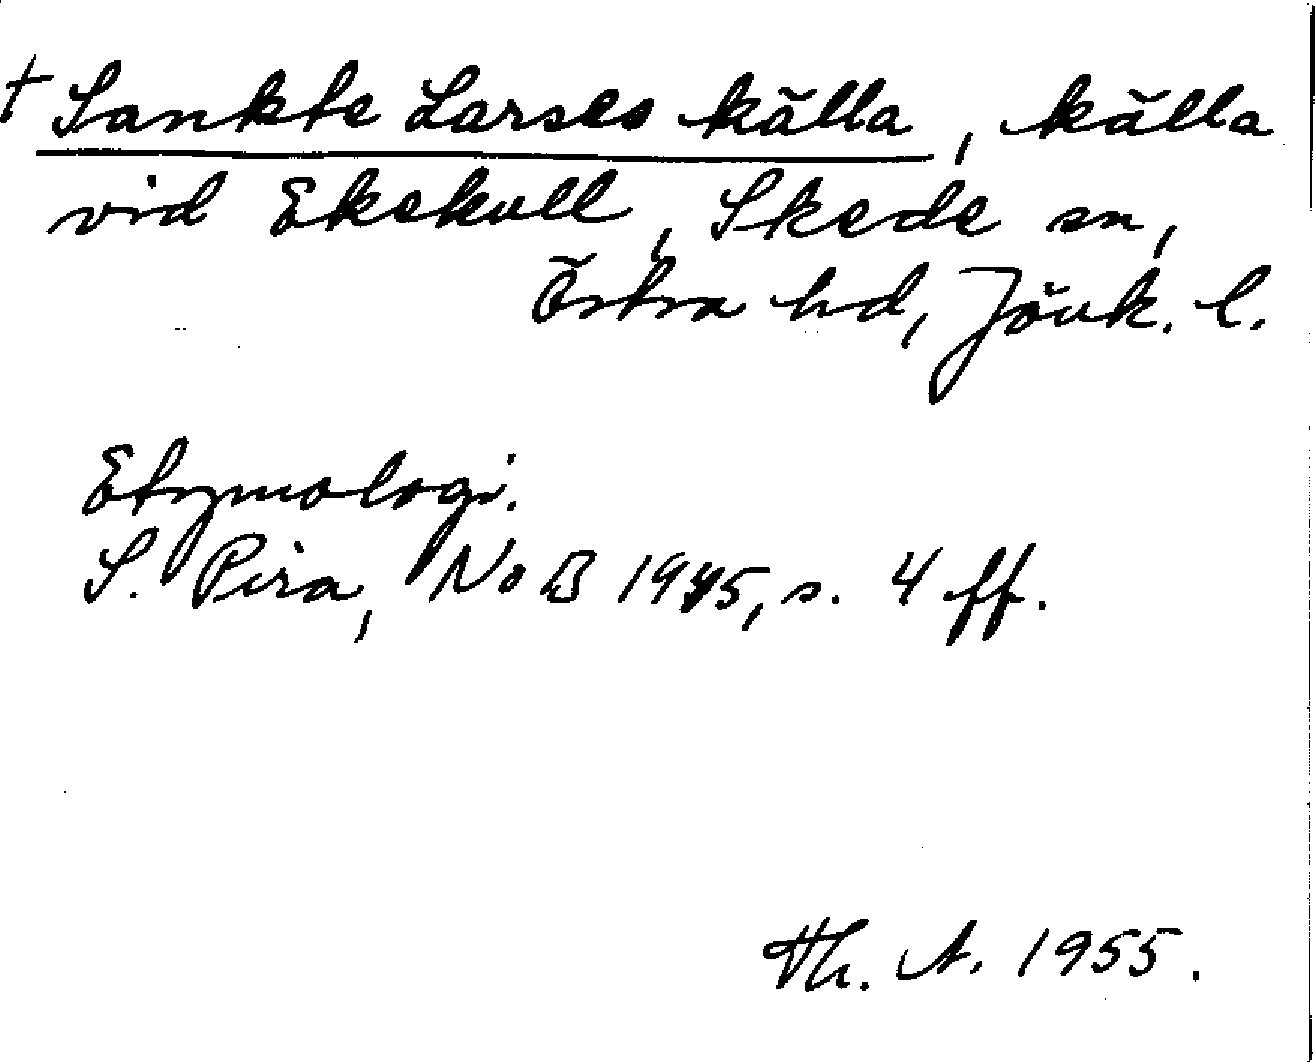 † Sankte Larses källa, källa
vid Ekekull, Skede sn,
Östra hd, Jönk. l.
Etymologi.
S. Pira, NoB 1945, s. 4 ff.
Th. A. 1955.